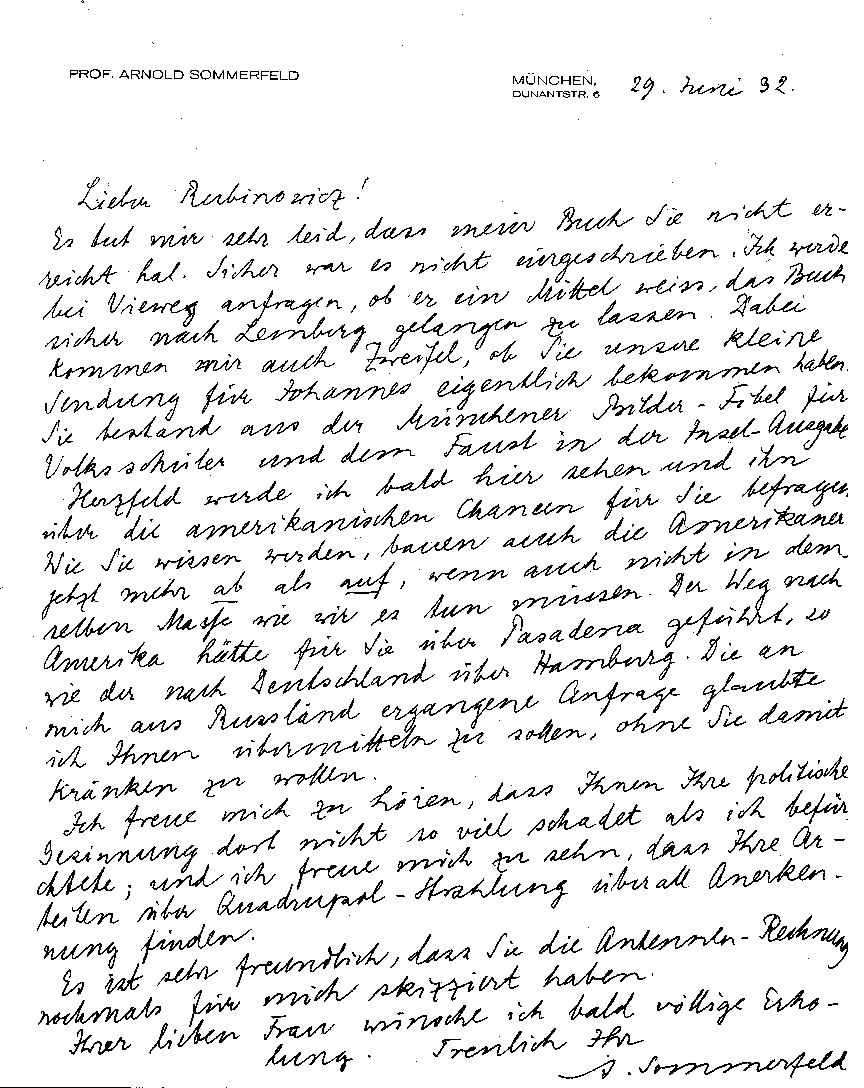 PROF. ARNOLD SOMMERFELD
MÜNCHEN,
DUNANTSTR. 6
29. Juni 32.
Lieber Rubinowicz!
Es tut mir sehr leid, dass mein Buch Sie nicht er-
reicht hat. Sicher war es nicht eingeschrieben. Ich werde
bei Vieweg anfragen, ob er ein Mittel weiss, das Buch
sicher nach Lemberg gelangen zu lassen. Dabei
kommen mir auch Zweifel, ob Sie unsere kleine
Sendung für Johannes eigentlich bekommen haben.
Sie bestand aus der Münchener Bilder-Fibel für
Volksschüler und dem Faust in der Insel-Ausgabe
Herzfeld werde ich bald hier sehen und ihn
über die amerikanischen Chancen für Sie befragen
Wie Sie wissen werden, bauen auch die Amerikaner
jetzt mehr ab als auf, wenn auch nicht in dem
selben Masse wie wir es tun müssen. Der Weg nach
Amerika hätte für Sie über Pasadena geführt, so
wie der nach Deutschland über Hamburg. Die an
mich aus Russland ergangene Anfrage glaubte
ich Ihnen übermitteln zu sollen, ohne Sie damit
kränken zu wollen.
Ich freue mich zu hören, dass Ihnen Ihre politische
Gesinnung dort nicht so viel schadet als ich befür
chtete; und ich freue mich zu sehn, dass Ihre Ar-
beiten über Quadrupol-Strahlung überall Anerken-
nung finden.
Es ist sehr freundlich, dass Sie die Antennen-Rechnung
nochmals für mich skizziert haben.
Ihrer lieben Frau wünsche ich bald völlige Erho-
lung. Treulich Ihr
A. Sommerfeld